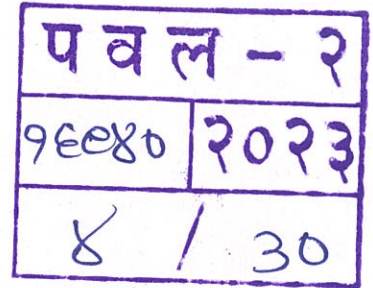 पवल - २
१६९४० २०२३
४ / ३०